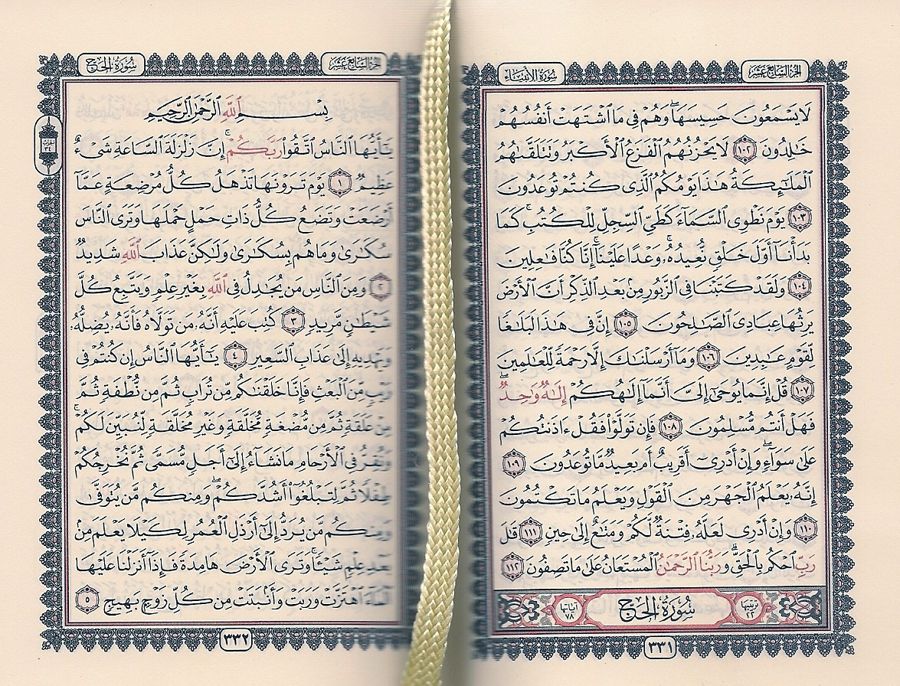 الجزء السابع عشر
سورة الأنبياء
لَا يَسْمَعُونَ حَسِيسَهَا ۖ وَهُمْ فِي مَا اشْتَهَتْ أَنفُسُهُمْ
خَالِدُونَ ١٠٢ لَا يَحْزُنُهُمُ الْفَزَعُ الْأَكْبَرُ وَتَتَلَقَّاهُمُ
الْمَلَائِكَةُ هَٰذَا يَوْمُكُمُ الَّذِي كُنتُمْ تُوعَدُونَ
١٠٣ يَوْمَ نَطْوِي السَّمَاءَ كَطَيِّ السِّجِلِّ لِلْكُتُبِ ۚ كَمَا
بَدَأْنَا أَوَّلَ خَلْقٍ نُّعِيدُهُ ۚ وَعْدًا عَلَيْنَا ۚ إِنَّا كُنَّا فَاعِلِينَ
١٠٤ وَلَقَدْ كَتَبْنَا فِي الزَّبُورِ مِن بَعْدِ الذِّكْرِ أَنَّ الْأَرْضَ
يَرِثُهَا عِبَادِيَ الصَّالِحُونَ ١٠٥ إِنَّ فِي هَٰذَا لَبَلَاغًا
لِّقَوْمٍ عَابِدِينَ ١٠٦ وَمَا أَرْسَلْنَاكَ إِلَّا رَحْمَةً لِّلْعَالَمِينَ
١٠٧ قُلْ إِنَّمَا يُوحَىٰ إِلَيَّ أَنَّمَا إِلَٰهُكُمْ إِلَٰهٌ وَاحِدٌ ۖ
فَهَلْ أَنتُم مُّسْلِمُونَ ١٠٨ فَإِن تَوَلَّوْا فَقُلْ ءَاذَنتُكُمْ
عَلَىٰ سَوَاءٍ ۖ وَإِنْ أَدْرِي أَقَرِيبٌ أَم بَعِيدٌ مَّا تُوعَدُونَ ١٠٩
إِنَّهُ يَعْلَمُ الْجَهْرَ مِنَ الْقَوْلِ وَيَعْلَمُ مَا تَكْتُمُونَ
١١٠ وَإِنْ أَدْرِي لَعَلَّهُ فِتْنَةٌ لَّكُمْ وَمَتَاعٌ إِلَىٰ حِينٍ ١١١ قَالَ
رَبِّ احْكُم بِالْحَقِّ ۗ وَرَبُّنَا الرَّحْمَٰنُ الْمُسْتَعَانُ عَلَىٰ مَا تَصِفُونَ ١١٢
ترتيبها ٢٢
سورة الحج
آياتها ٧٨
٣٣١
الجزء السابع عشر
سورة الحج
بِسْمِ اللَّهِ الرَّحْمَٰنِ الرَّحِيمِ
يَا أَيُّهَا النَّاسُ اتَّقُوا رَبَّكُمْ ۚ إِنَّ زَلْزَلَةَ السَّاعَةِ شَيْءٌ
عَظِيمٌ ١ يَوْمَ تَرَوْنَهَا تَذْهَلُ كُلُّ مُرْضِعَةٍ عَمَّا
أَرْضَعَتْ وَتَضَعُ كُلُّ ذَاتِ حَمْلٍ حَمْلَهَا وَتَرَى النَّاسَ
سُكَارَىٰ وَمَا هُم بِسُكَارَىٰ وَلَٰكِنَّ عَذَابَ اللَّهِ شَدِيدٌ
٢ وَمِنَ النَّاسِ مَن يُجَادِلُ فِي اللَّهِ بِغَيْرِ عِلْمٍ وَيَتَّبِعُ كُلَّ
شَيْطَانٍ مَّرِيدٍ ٣ كُتِبَ عَلَيْهِ أَنَّهُ مَن تَوَلَّاهُ فَأَنَّهُ يُضِلُّهُ
وَيَهْدِيهِ إِلَىٰ عَذَابِ السَّعِيرِ ٤ يَا أَيُّهَا النَّاسُ إِن كُنتُمْ فِي
رَيْبٍ مِّنَ الْبَعْثِ فَإِنَّا خَلَقْنَاكُم مِّن تُرَابٍ ثُمَّ مِن نُّطْفَةٍ ثُمَّ
مِنْ عَلَقَةٍ ثُمَّ مِن مُّضْغَةٍ مُّخَلَّقَةٍ وَغَيْرِ مُخَلَّقَةٍ لِّنُبَيِّنَ لَكُمْ ۚ
وَنُقِرُّ فِي الْأَرْحَامِ مَا نَشَاءُ إِلَىٰ أَجَلٍ مُّسَمًّى ثُمَّ نُخْرِجُكُمْ
طِفْلًا ثُمَّ لِتَبْلُغُوا أَشُدَّكُمْ ۖ وَمِنكُم مَّن يُتَوَفَّىٰ
وَمِنكُم مَّن يُرَدُّ إِلَىٰ أَرْذَلِ الْعُمُرِ لِكَيْلَا يَعْلَمَ مِن
بَعْدِ عِلْمٍ شَيْئًا ۚ وَتَرَى الْأَرْضَ هَامِدَةً فَإِذَا أَنزَلْنَا عَلَيْهَا
الْمَاءَ اهْتَزَّتْ وَرَبَتْ وَأَنبَتَتْ مِن كُلِّ زَوْجٍ بَهِيجٍ ٥
٣٣٢